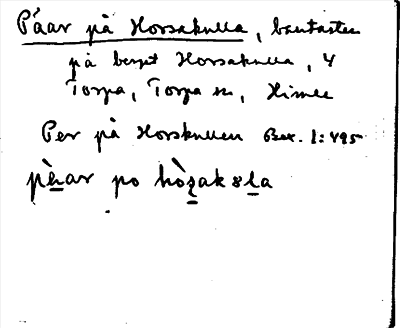 Päar på Horsakulla, bautasten
på berget Horsakulla, 4
Torpa, Torpa sn, Himle
Per på Horskullen Bex. 1:495
pèhar po hòzakəla